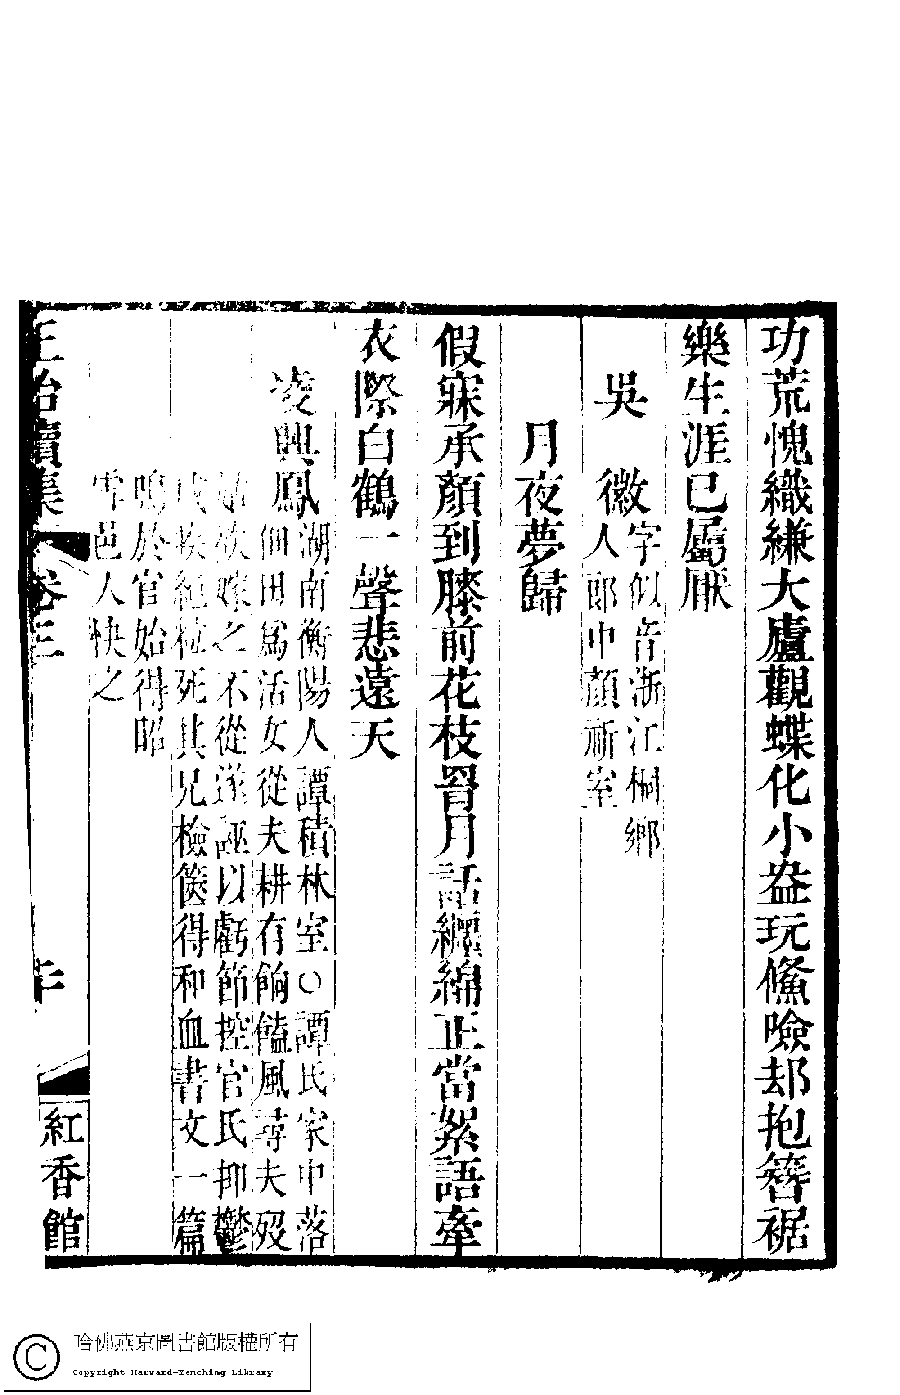 功荒愧織縑大廬觀蝶化小盎玩鯈險却抱簪裾
樂生涯已屬厭
吳　徽
字似音浙江桐鄉
人郎中顏室
月夜夢歸
假寐承顏到膝前花枝罥月話纏綿正當絮語牽
衣際白鶴一聲悲遠天
凌興鳳
湖南衡陽人譚積林室○譚氏家中落
佃田為活女從夫耕有餉饁風尋夫歿
姑欲嫁之不從遂誣以虧節控官氏抑鬱
成疾絕粒死其兄檢篋得和血書文一篇
鳴於官始得昭
雪邑人快之
正始續集　卷三
紅香館
哈佛燕京圖書館版權所有
Copyright Harvard-Yenching Library